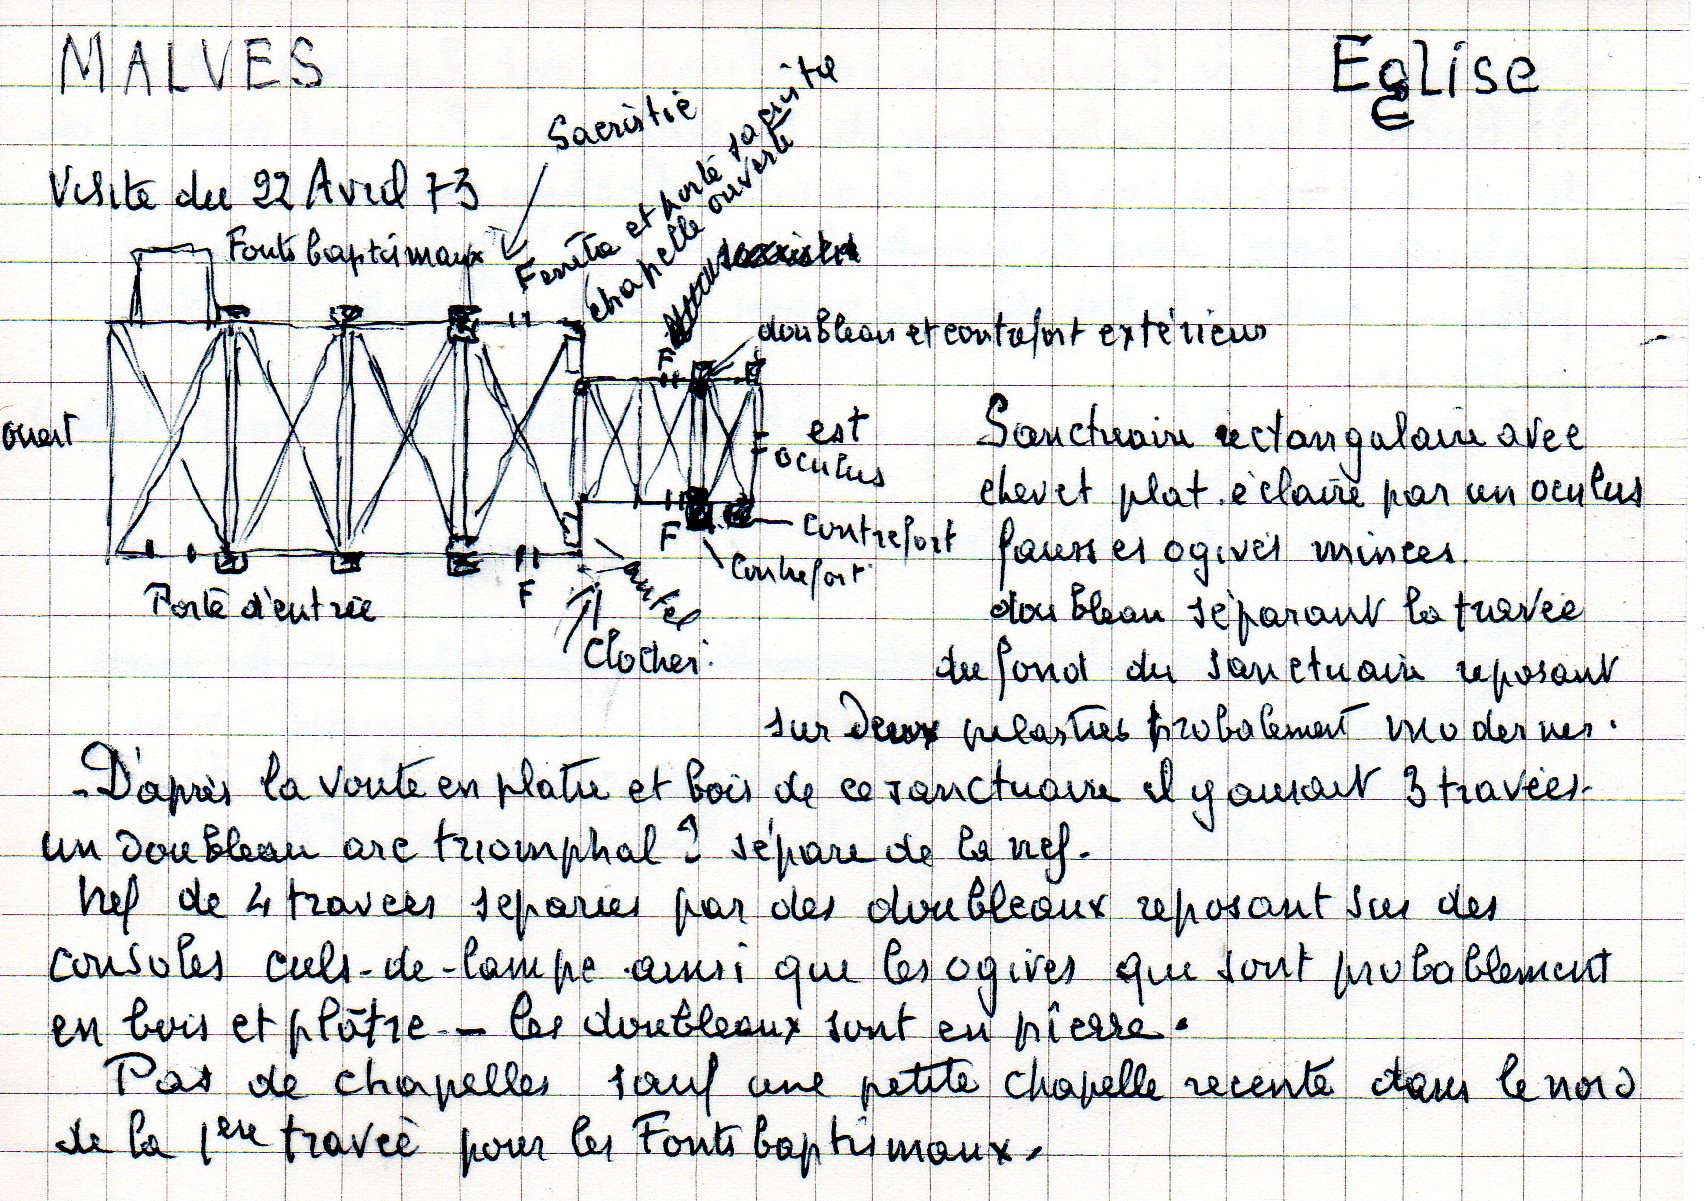 MALVES
Eglise
Visite du 22 Avril 73
Sacristie
Fonts baptismaux
Fenêtre et porte sacristie
chapelle ouverte
F
doubleau et contrefort extérieur
ouest
est
oculus
contrefort
F
Contrefort
Porte d'entrée
F
autel
Clocher.
Sanctuaire rectangulaire avec
chevet plat. éclairé par un oculus
fausses ogives minces.
doubleau séparant la travée
du fond du sanctuaire reposant
sur deux pilastres probalement modernes.
- D'après la voute en platre et bois de ce sanctuaire il y aurait 3 travées.
un doubleau arc triomphal ? sépare de la nef.
Nef de 4 travées separées par des doubleaux reposant sur des
consoles culs-de-lampe ainsi que les ogives que sont probablement
en bois et plâtre - les doubleaux sont en pierre.
Pas de chapelles sauf une petite chapelle recente dans le nord
de la 1ere travée pour les Fonts baptismaux.